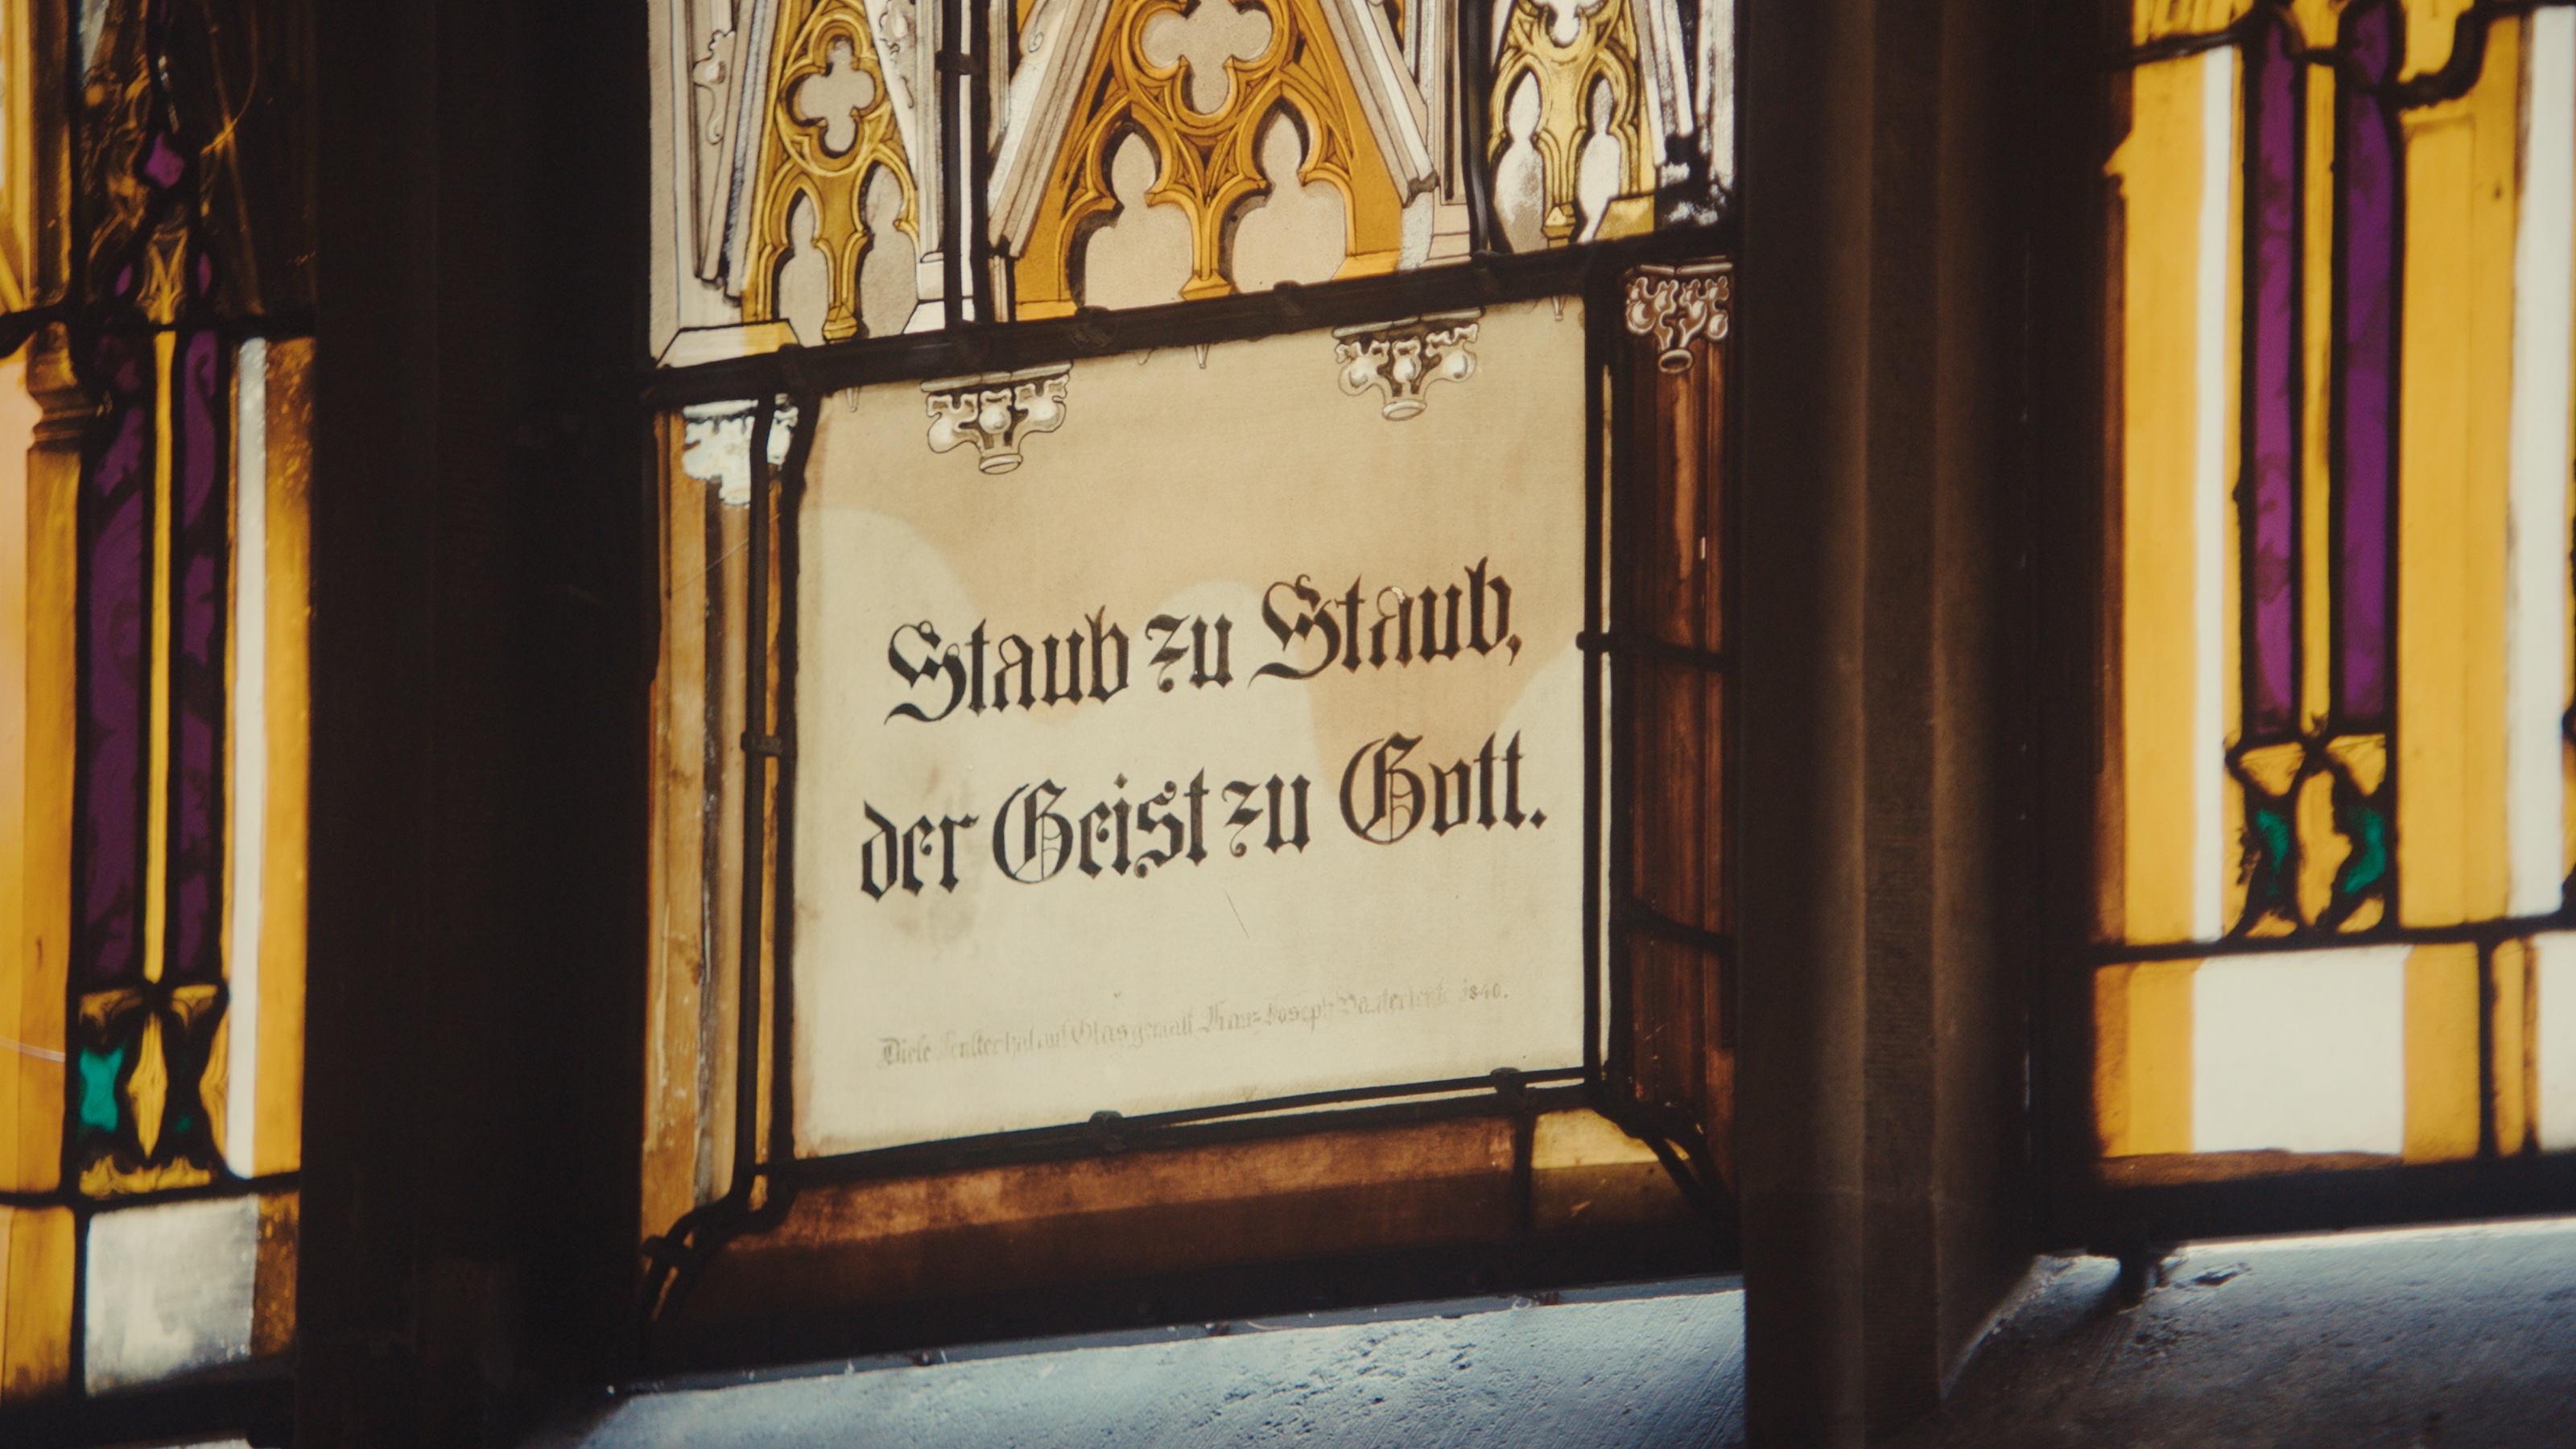 Staub zu Staub,
der Geist zu Gott.
Diese Fenster hat auf Glas gemalt Franz Joseph 1840.